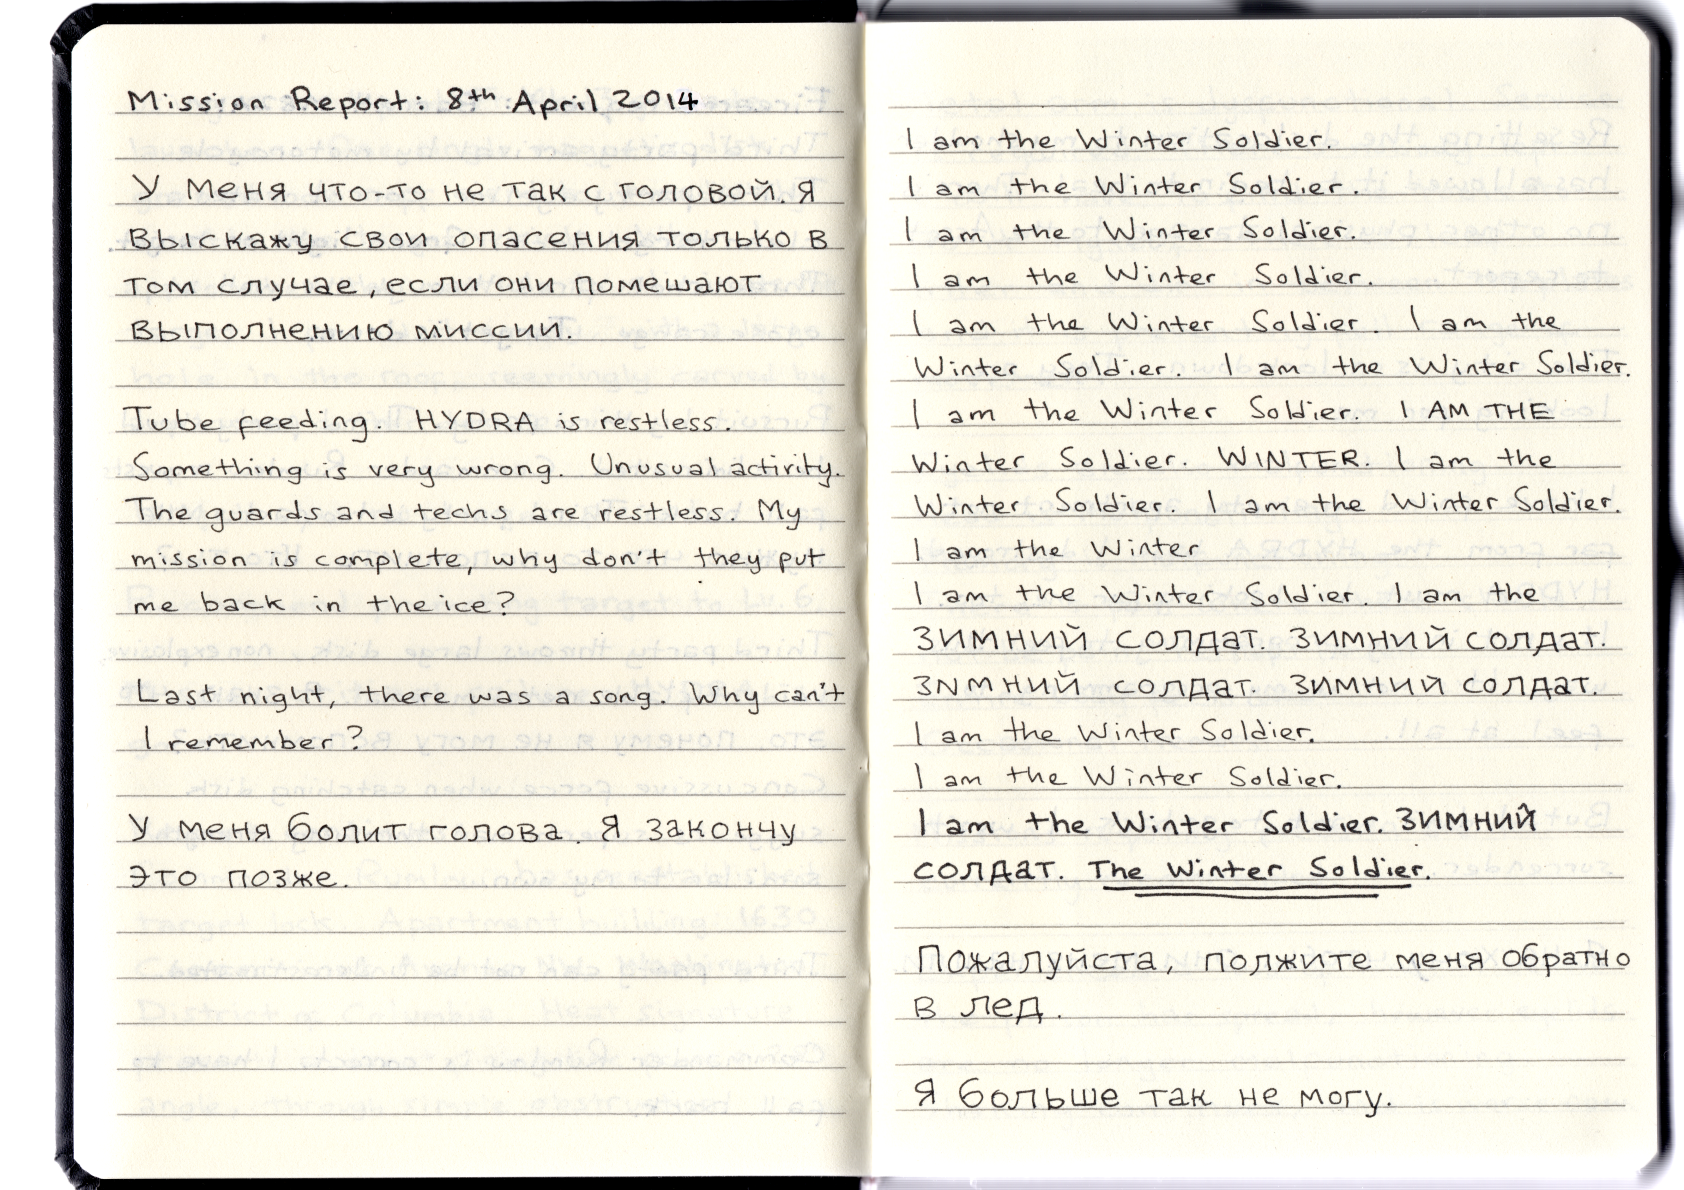 Mission Report: 8th April 2014
У меня что-то не так с головой. Я
выскажу свои опасения только в
том случае, если они помешают
выполнению миссии.
Tube feeding. HYDRA is restless.
Something is very wrong. Unusual activity.
The guards and techs are restless. My
mission is complete, why don't they put
me back in the ice?
Last night, there was a song. Why can't
I remember?
У меня болит голова. Я закончу
это позже.
I am the Winter Soldier.
I am the Winter Soldier.
I am the Winter Soldier.
I am the Winter Soldier.
I am the Winter Soldier. I am the
Winter Soldier. I am the Winter Soldier.
I am the Winter Soldier. I AM THE
Winter Soldier. WINTER. I am the
Winter Soldier. I am the Winter Soldier.
I am the Winter
I am the Winter Soldier. I am the
ЗИМНИЙ СОЛДАТ. ЗИМНИЙ СОЛДАТ.
ЗNМНИЙ СОЛДАТ. ЗИМНИЙ СОЛДАТ.
I am the Winter Soldier.
I am the Winter Soldier.
I am the Winter Soldier. ЗИМНИЙ
СОЛДАТ. The Winter Soldier.
Пожалуйста, полжите меня обратно
в лед.
Я больше так не могу.